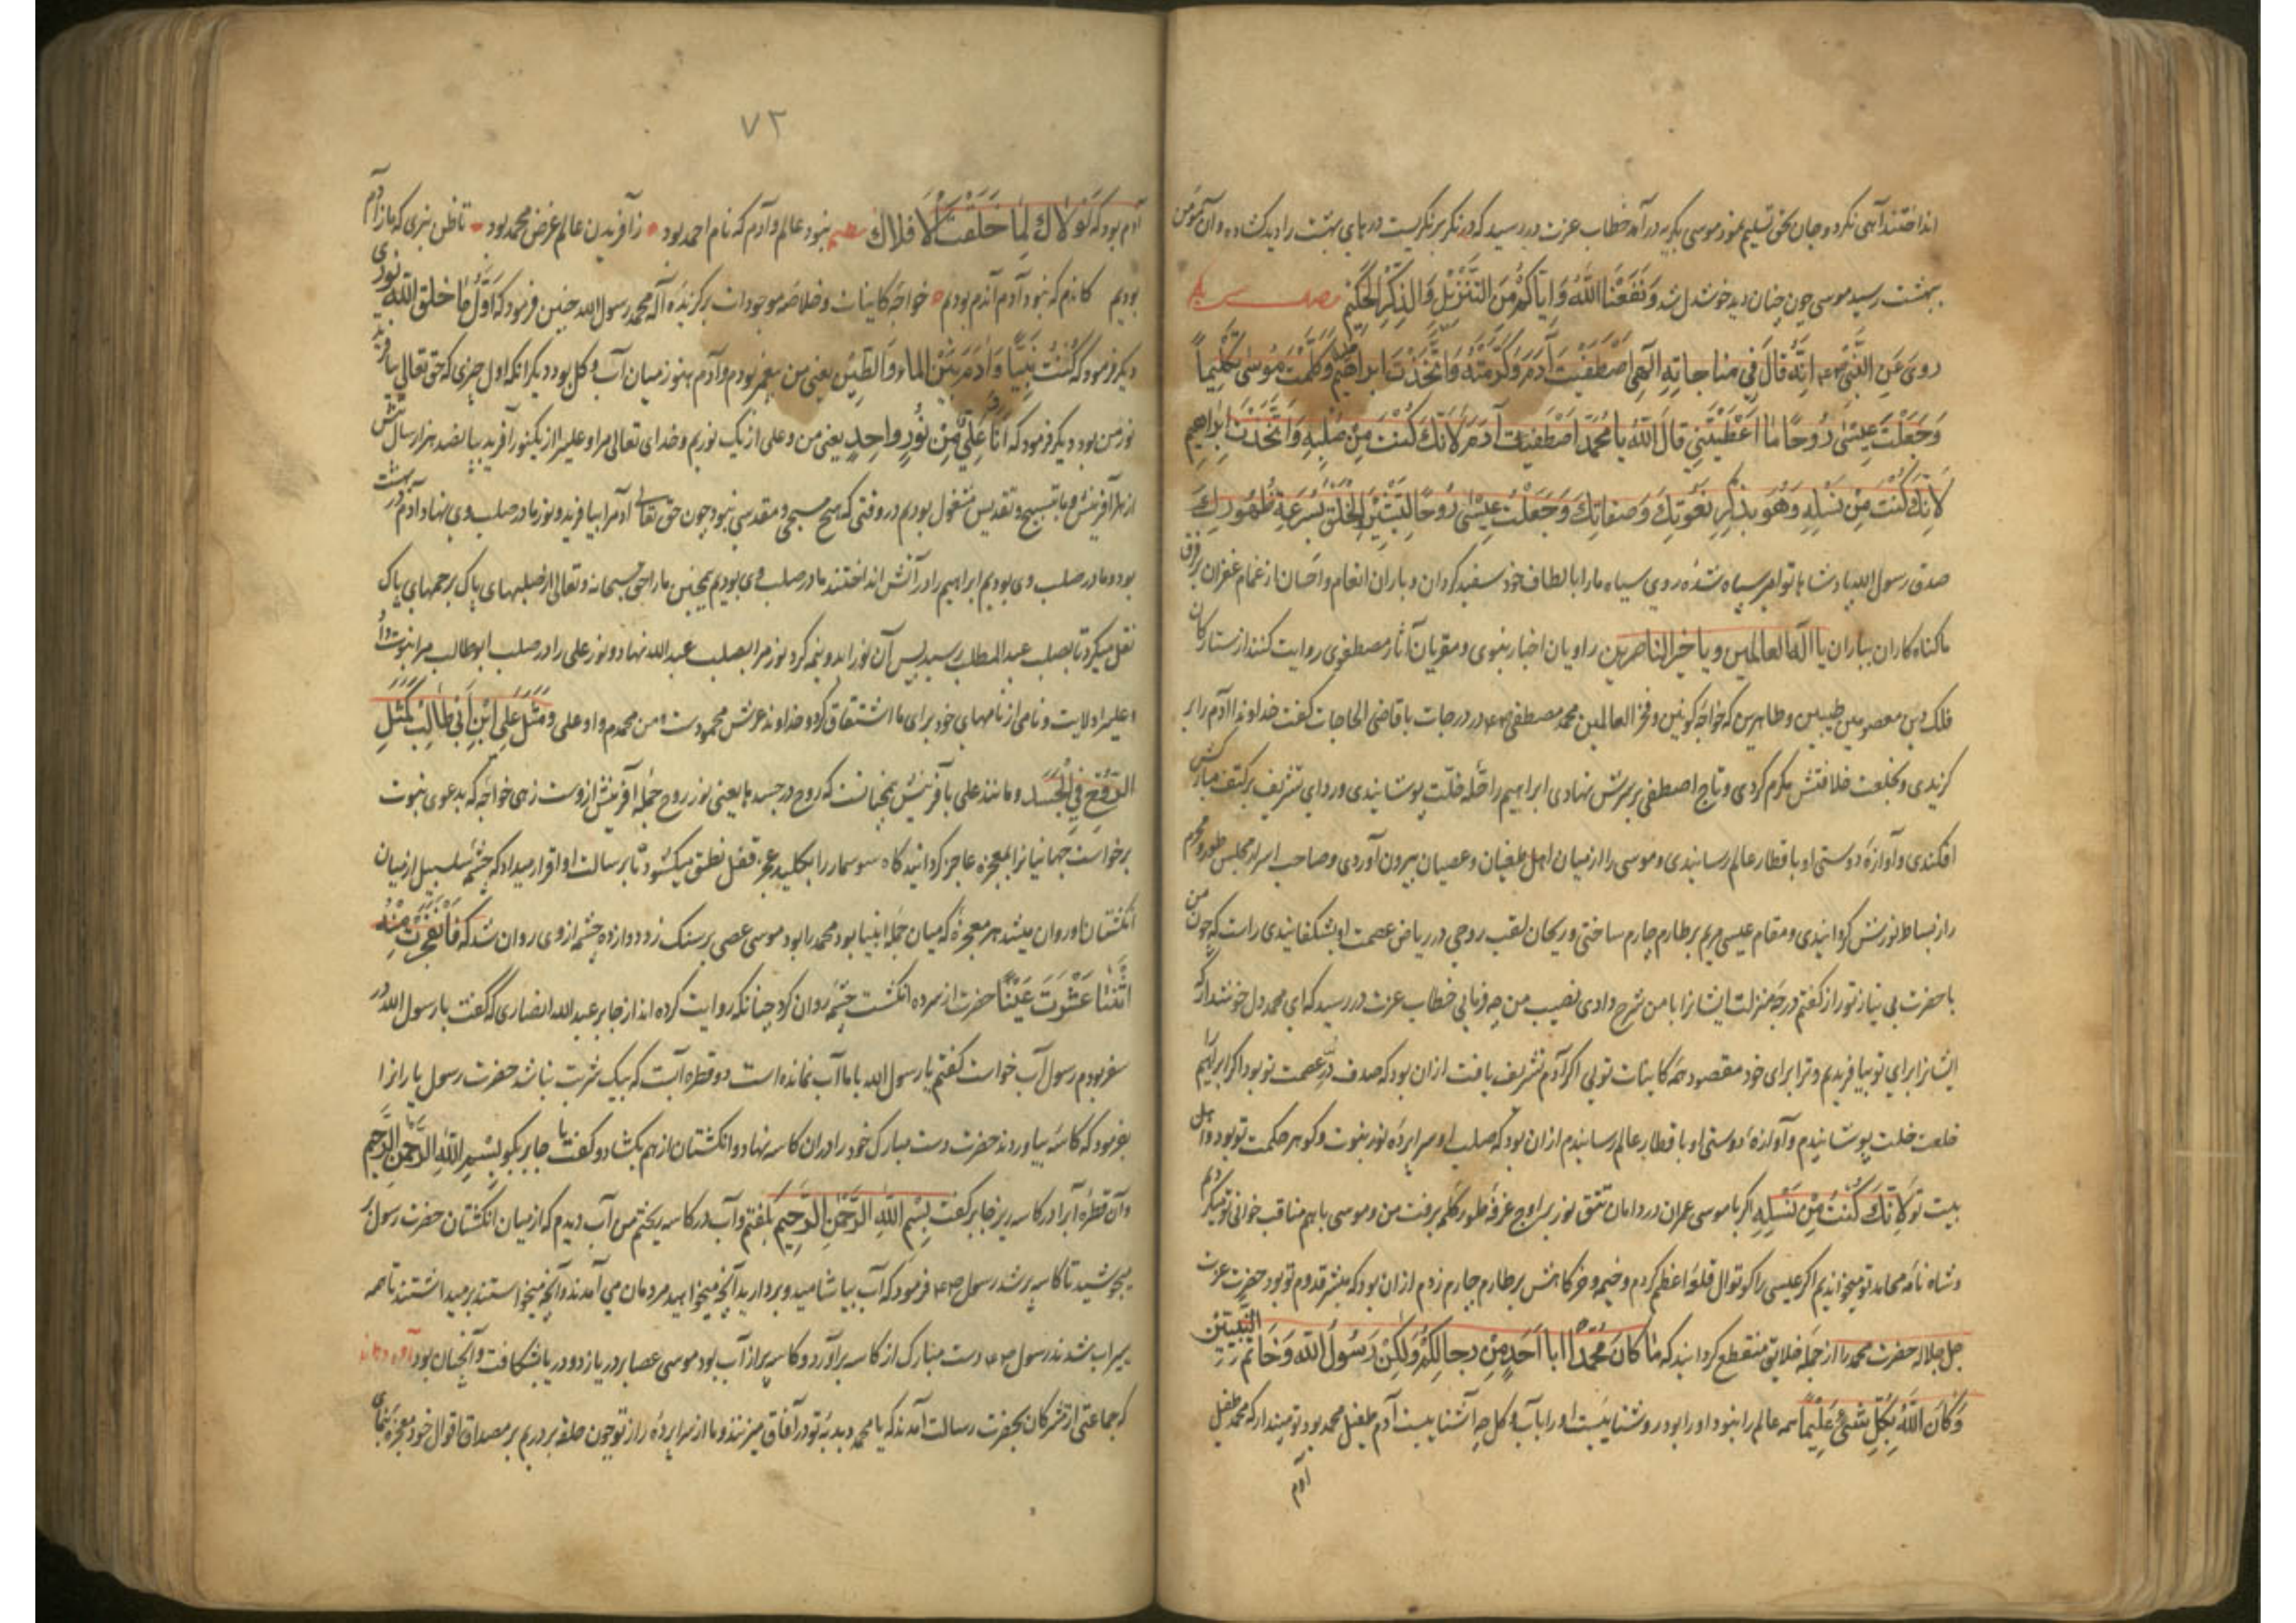 انداختند آهی نکرد و جان بحق تسلیم نمود موسی بگریه درآمد خطاب عزت در رسید که در نکر بر نکریست درهای بهشت را دید کشاده و آن مؤمن
ببهشت رسید موسی چون چنان دید خوشدل شد وَنَفَعَنَا اللّٰهُ وَاِیّاکُمْ مِنَ التَّنْزِیْلِ وَالذِّکْرِ الْحَکِیْمِ
رویَ عَنِ النَّبیِّ اَنَّه قالَ فی مناجاتِهِ اِلٰهی اصْطَفَیْتَ آدَمَ وَکَرَّمْتَهُ وَاتَّخَذْتَ ابراهیمَ خلیلا وَکَلَّمْتَ مُوسٰی تَکْلیماً
وَجَعَلْتَ عِیْسٰی رُوحًا مٰا اَعْطَیْتَنِی قالَ اللّٰهُ یا مُحَمَّد اصْطَفَیْتُ آدَمَ لِاَنَّكَ کُنْتَ مِنْ صُلْبِهِ وَاتَّخَذْتُ اِبْراهیم
لِاَنَّكَ کُنْتَ مِنْ نَسْلِهِ وَهُوَ یذْکُر نُعُوتِكَ وَصِفاتِكَ وَجَعَلْتُ عِیْسٰی رُوحًا لِتَبْشِیْرِ الْخَلْقِ بِسُرْعَةِ ظُهُورِكَ
صدق رسول الله پادشاها توامر سیاه شده روی سیاه ما را بالطاف خود سفید کردان و باران انعام و احسان از غمام غفران بر فرق
ما کناه کاران بباران یا اِلٰهَ العالَمین و یا خیر الناصرین راویان اخبار نبوی و مقریان آثار مصطفوی روایت کنند از ستارکان
فلك دین معصومین طیبین و طاهرین که خواجه کونین و فخر العالمین محمد مصطفی در درجات با قاضی الحاجات کفت خداوندا آدم را بر
کزیدی و بخلعت خلافتش مکرم کردی و تاج اصطفی بر سرش نهادی ابراهیم را حلّه خلّت پوشانیدی و ردای تشریف بر کتف مبارکش
افکندی و آوازه دوستی او باقطار عالم رسانیدی و موسی را از میان اهل طغیان و عصیان بیرون آوردی و صاحب اسرار مجلس طور و محرم
راز بساط نورش کردانیدی و مقام عیسی مریم بر طارم چارم ساختی و ریحان لقب روحی در ریاض عصمت او بشکفانیدی راست که چون من
با حضرت بی نیاز تو راز کفتم و درجه منزلت ایشانرا با من شرح دادی نصیب من چه فرمایی خطاب عزت در رسید که ای محمد دل خوشدار که
ایشانرا برای تو بیافریدم و ترا برای خود مقصود همه کاینات تویی اکر آدم تشریف یافت از آن بود که صدف دُرّ عصمت تو بود اکر ابراهیم
خلعت خلت پوشانیدم و آوازه دوستی او باقطار عالم رسانیدم از آن بود که صلب او سراپرده نور نبوت و کوهر حکمت تو بود و اهل
بیت تو لِاَنَّكَ کُنْتَ مِنْ نَسْلِهِ اکر با موسی عمران در دامان تتق نور بر اوج غرفه طور کلم برفت من و موسی باهم مناقب خوانی تو میکردیم
و شاه نامه محامد تو میخواندیم اکر عیسی را کوتوال قلعه اعظم کردم و خیمه و خرکاهش بر طارم چارم زدم از آن بود که مبشر قدوم تو بود حضرت عزت
جل جلاله حضرت محمد را از جمله خلایق منقطع کردانید که مٰا کٰانَ مُحَمَّدٌ اَبا اَحَدٍ مِنْ رِجالِکُمْ وَلٰکِنْ رَسُولَ اللّٰهِ وَخٰاتَمَ النَّبِیّیْن
وَکٰانَ اللّٰهُ بِکُلِّ شَیْءٍ عَلِیْماً همه عالم را نبود او را بود روشناییست او را با آب و کل چه آشناییست آدم طفیل محمد بود تو مپندار که محمد طفیل
آدم
۷۳
آدم بود که لَوْلاٰكَ لَمٰا خَلَقْتُ الْاَفلاك نظم نبود عالم و آدم که نام احمد بود زآفریدن عالم غرض محمد بود تا ظن نبری که ما ز آدم
بودیم کاندم که نبود آدم آندم بودیم خواجه کاینات و خلاصه موجودات برکزیده آله محمد رسول الله چنین فرمود که اَوَّلُ مٰا خَلَقَ اللّٰهُ نُوری
دیکر فرمود که کُنْتُ نَبِیًّا وَاٰدَمَ بَیْنَ الماءِ وَالطِّیْنِ یعنی من پیغمبر بودم و آدم هنوز میان آب و کل بود دیکر انکه اول چیزی که حق تعالی بیافرید
نور من بود دیکر فرمود که اَنَا وَعَلِیٌّ مِنْ نُورٍ واحِدٍ یعنی من و علی از یک نوریم و خدای تعالی مرا و علیرا از یکنور آفرید بپانصد هزار سال پیش
از آفرینش و ما بتسبیح و تقدیس مشغول بودیم در وقتی که هیچ مسبحی و مقدسی نبود چون حق تعالی آدم را بیافرید و نور ما در صلب وی نهاد و آدم در بهشت
بود و ما در صلب وی بودیم ابراهیم را در آتش انداختند ما در صلب وی بودیم همچنین ما را حق سبحانه و تعالی از صلبهای پاك برحمهای پاك
نقل میکرد تا بصلب عبدالمطلب رسید پس آن نور را بدو نیمه کرد نور مرا بصلب عبدالله نهاد و نور علی را در صلب ابوطالب مرا نبوت داد
و علیرا ولایت و نامی از نامهای خود برای ما اشتقاق کرد و خداوند عرش محمودست و من محمدم و او علی وَمَثَلُ عَلِی ابْنِ اَبی طٰالِبْ کَمَثَلِ
الرُّوحِ فِی الْجَسَد و مانند علی با آفرینش همچنانست که روح در جسدها یعنی نور روح جمله آفرینش ازوست زهی خواجه که بدعوی نبوت
برخواست جهانیانرا بمعجزه عاجز کردانید کاه سوسمار را بکلید عجز قفل نطق میکشود تا برسالت او اقرار میداد که چشمه سلسبیل از میان
انکشتان او روان میشد هر معجزه که میان جمله انبیا بود محمد را بود موسی عصی بر سنک زد دوازده چشمه از وی روان شد که فَانْفَجَرَتْ مِنْهُ
اثْنَتٰا عَشْرَةَ عَیْنًا حضرت از سر ده انکشت چشمه روان کرد چنانکه روایت کرده اند از جابر عبدالله انصاری که گفت با رسول الله در
سفر بودم رسول آب خواست کفتم یا رسول الله با ما آب نمانده است دو قطره آبست که بیک شربت نباشد حضرت رسول یارانرا
بفرمود که کاسه بیاوردند حضرت دست مبارک خود را در ان کاسه نهاد و انکشتان از هم بکشاد و کفت یا جابر بکو بِسْمِ اللّٰهِ الرَّحْمٰنِ الرَّحِیمِ
و آن قطره آبرا در کاسه ریز جابر کفت بِسْمِ اللّٰهِ الرَّحْمٰنِ الرَّحِیمِ بکفتم و آب در کاسه ریختم پس آب دیدم که از میان انکشتان حضرت رسول
میجوشید تا کاسه پر شد رسول فرمود که آب بیاشامید و بردارید آنچه میخواهید مردمان می آمدند و آنچه میخواستند برمیداشتند تا همه
سیراب شدند رسول دست مبارک از کاسه برآورد و کاسه پر از آب بود موسی عصا بر دریا زد و دریا بشکافت و آنچنان بود آورده اند
که جماعتی از مشرکان بحضرت رسالت آمدند که یا محمد دبدبه تو در آفاق میزنند و ما از سراپرده راز تو چون حلقه بر دریم بر مصداق اقوال خود معجزه بنمای